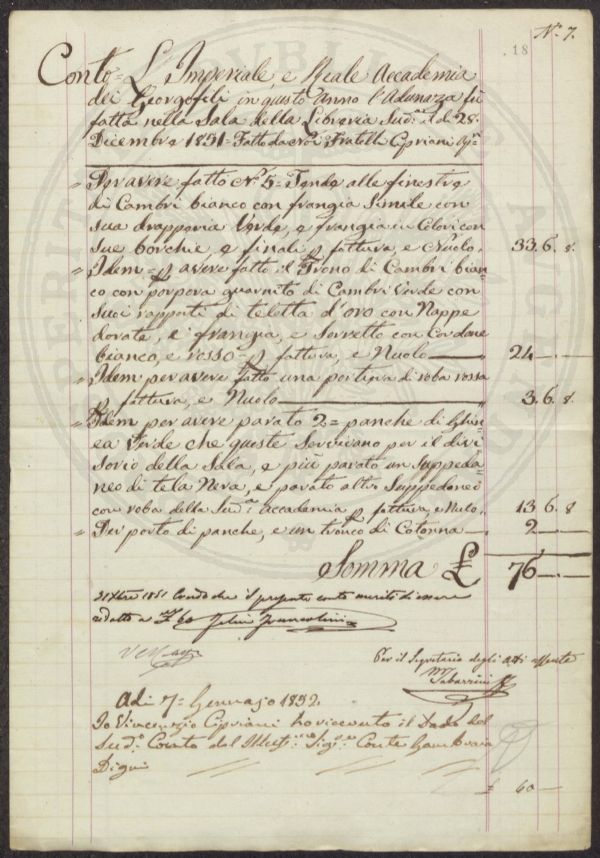 N.º 7.
18
Conto = L Imperiale, e Reale Accademia
dei Georgofili in questo Anno l'Adunanza fù
fatta nella Sala della Libreria Sud.ª il dì 28.
Dicembre 1851 Fatto da noi Fratelli Cipriani
" Per avere fatto N.º 5 = Tende alle finestre
di Cambri bianco con frangia Simile con
sua drapparia Verde, e frangia in Colori con
sue borchie e finali p fattura, e Nuolo, 33. 6. 8.
" Idem = p avere fatto il Trono di Cambri bian
co con porpora guarnito di Cambri Verde con
suoi rapporti di teletta d'oro con Nappe
dorate, e frangia, e Sorretto con Cordone
bianco, e rosso = p fattura, e Nuolo 24
" Idem per avere fatto una portiera di roba rossa
p fattura, e Nuolo 3. 6. 8.
" Idem per avere parato 2 = panche di Ghin
ea Verde che queste Servivano per il divi
sorio della Sala, e più parato un Suppeda
neo di tela Nera, e parato altri Suppedanei
con roba della Sud.ª Accademia p fattura, e Nulo, 13 6. 8
" Per porto di panche, e un tronco di Colonna 2
Somma £ 76
31 Xbre 1851 Credo che il presente conto meriti di essere
ridotto a £ 60 Felice Francolini
Per il Segretario degli Atti assente
Tabarrini
Adi 7 = Gennajo 1852
Io Vincenzio Cipriani ho ricevuto il Saldo del
Sud.º Conto dal Sig.re Conte
Digni
£ 60